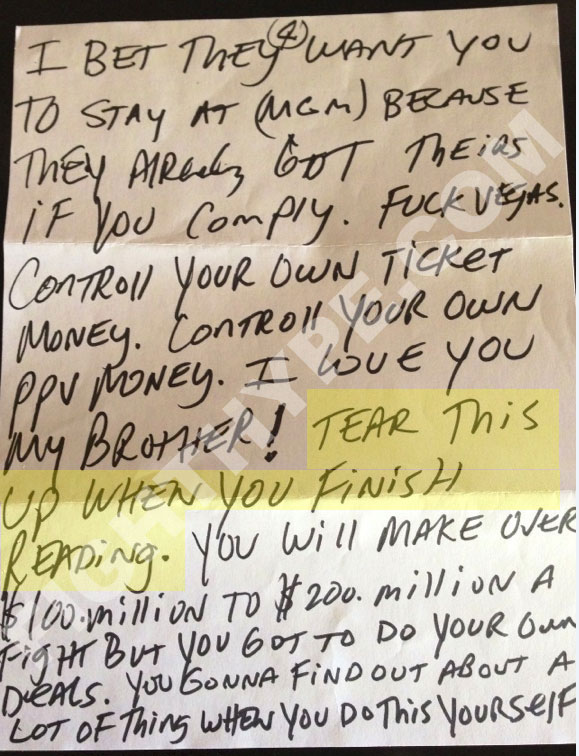 I BET THEY (2) WANT YOU
TO STAY AT (MGM) BECAUSE
THEY AlReady GOT THeiRs
iF YOU ComPly. FUCK VEGAS.
CONTROll YOUR OWN TiCKET
MONEY. CONTROll YOUR OWN
PPV MONEY. I LOVE YOU
MY BROTHER! TEAR THis
UP WHEN YOU FiNiSH
READiNG. YOU Will MAKE OVER
$100.MilliON TO $200.MilliON A
FiGHT BUT YOU GOT TO DO YOUR OWN
DEALS. YOU GONNA FIND OUT ABOUT A
LOT OF THing WHEN YOU DO THis YOURSElF
FIGHTHYPE.COM